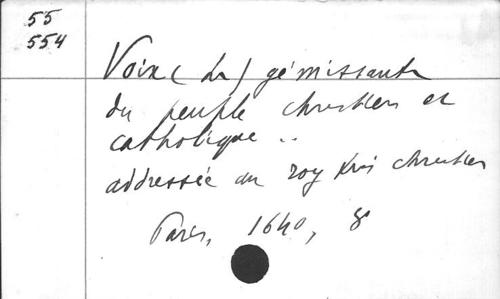 55
554
Voix (la) gémissante
du peuple chrestien et
catholique ..
addressée au roy très chrestien
Paris, 1640, 8